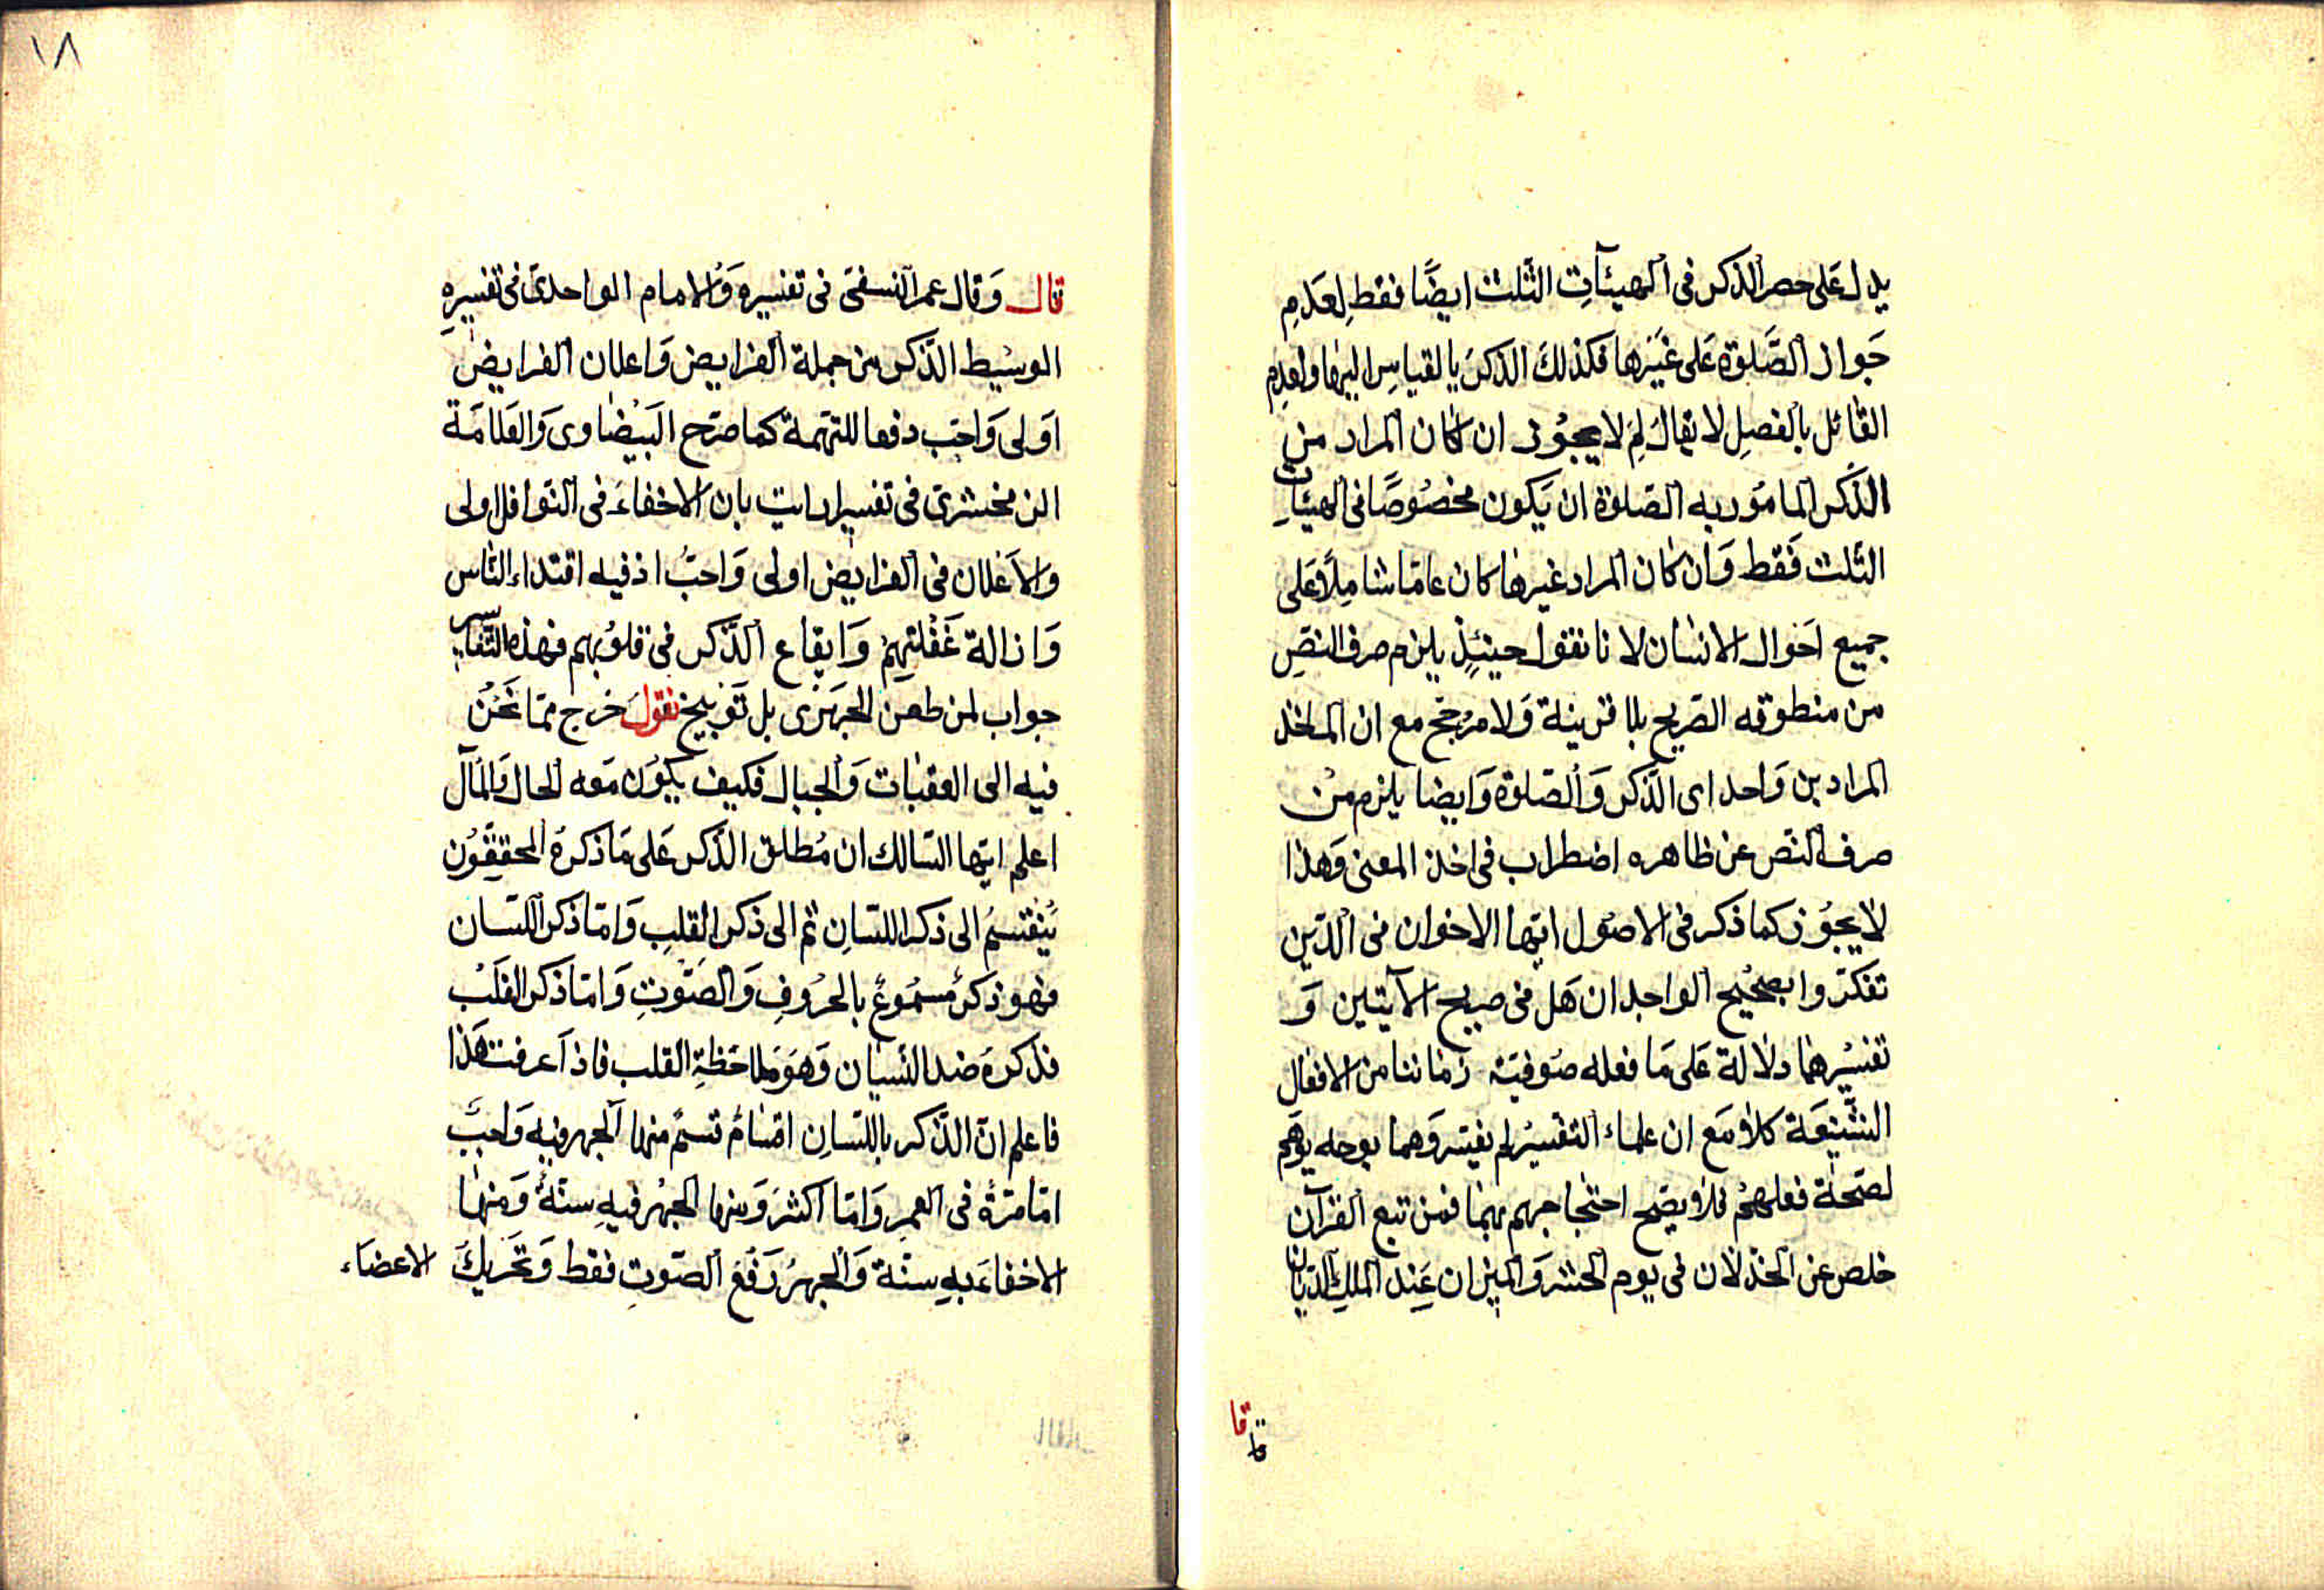 يدل عَلى حصر الذكر فى الهيئآتِ الثّلث ايضًا فقط لِعَدَمِ
جَواز الصَّلوة عَلى غَيْرها فكذلكَ الذكرَ بالقياسِ اليها ولعدم
القائل بالفصلِ لا يقالُ لِمَ لا يجوُز ان كان المراد من
الذّكر المامَور به الصّلوة ان يَكون مخصُوصًا فى الهيئات
الثّلث فَقط وَان كان المراد غيرها كان عامّا شامِلاً عَلى
جميع احَوال الانسان لانا نقول حينئذٍ يلزم صرف النصِّ
من منطوقه الصّريح بلا قرينة وَلا مرُجّح مع ان المـاخذ
المرادين وَاحد اى الذّكر وَالصّلوة وَايضا يلزم منْ
صرف النّص عن ظاهره اضطراب فى اخذ المعنى وَهذا
لا يجوُز كما ذكر فى الاصُول ايّها الاخوان فى الدّين
تفكرّوا بصَحُيح الواجدان هَل فى صريح الآيتين وَ
تفسُيرهما دلالة عَلى مَا فعله صَوفيّة زماننا من الافعال
الشّنيعَة كلاّ مَع ان علماء التفسيُر لم يفسّروَهما بوجه يوَهم
لصّحة فعلهمُ فلا يصّح احتجاجهم بهما فمن تبع القرآن
خلص عن الخذلان فى يوم الحشر وَالميزان عِند الملك الديّان
قا
قا
١٨
قال وَقال عمر النسفىَ فى تفسيره وَالامام الواحدىَ فى تفسيرهِ
الوسُيط الذّكر من جملة الفرايض وَاعلان الفرايض
اوَلى وَاحبّ دفعا للتهمة كما صرّح البَيضَاوى وَالعَلاّمَة
الزمخشرىَ فى تفسير ايت بان الاخفاءَ فى النّوافل اولى
والاَعْلان فى الفرايض اولى وَاحبّ اذ فيه اقتداء النّاس
وَازالة غَفْلتهمُ وَايقاع الذّكر فى قلوُبهم فهذه التّفاسير
جواب لمن طعن للجَهَرىَ بل تَوبيخ نقولَ خرج ممّا نَحْنُ
فيه الى العقبات وَالجبال فكيف يكوُن مَعه الحال وَالمآل
اعلم ايّها السّالك ان مُطلق الذّكر عَلى مَا ذكرهُ المحققِوُن
يُنْقَسمُ الى ذكر اللسّانِ ثم الى ذكر القلبِ وَامّا ذكر اللسّان
فهو ذكرٌ مسمُوعٌ بالحرُوفِ وَالصَّوْتِ وَامّا ذكر القَلَبْ
فذكرهَ ضد النّسيان وَهَوَ ملاحَظةِ القلب فاذاَ عرفت هَذا
فاعلم انّ الذّكر باللسّانِ اقسَامٌ قسمٌ منها الجهر فيه وَاجبٌ
امّا مرّةً فى العمرِ وَامّا اكثرَ وَمنها الجهرُ فيهِ سنّةٌ وَمنها
الاخفاءَ بهِ سنّة وَالجهرُ رَفع الصّوتِ فقط وَتَحريكَ الاعضاَء